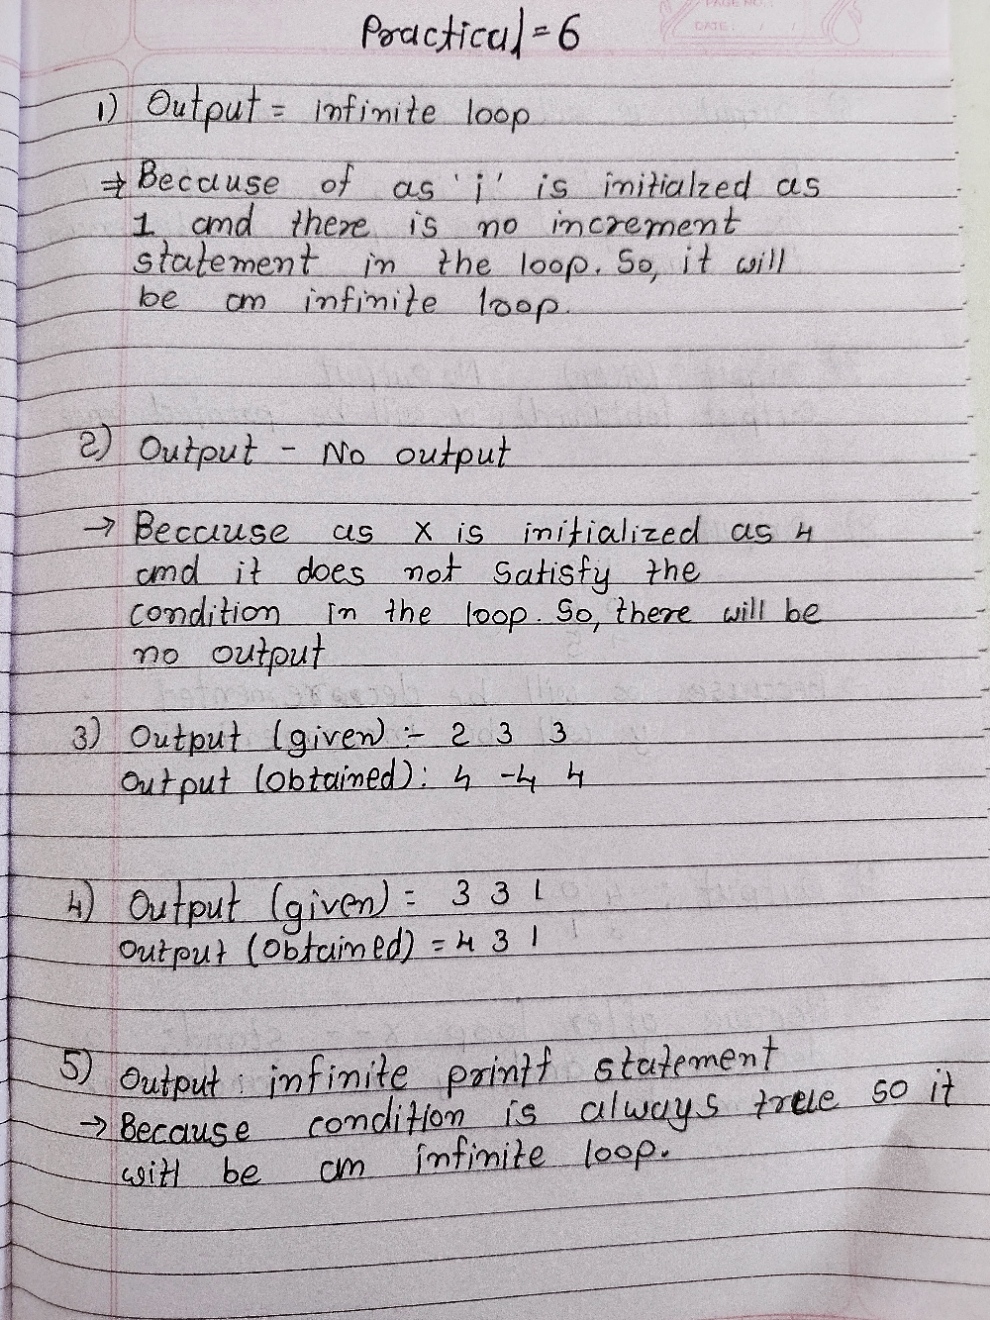 Practical = 6
1) Output = infinite loop
⇒ Because of as 'i' is initialzed as
1 and there is no increment
statement in the loop. So, it will
be an infinite loop.
2) Output - No output
→ Because as x is initialized as 4
and it does not satisfy the
condition in the loop. So, there will be
no output
3) Output (given) :- 2 3 3
Output (obtained): 4 -4 4
4) Output (given) = 3 3 1
Output (obtained) = 4 3 1
5) Output : infinite printf statement
→ Because condition is always true so it
will be an infinite loop.